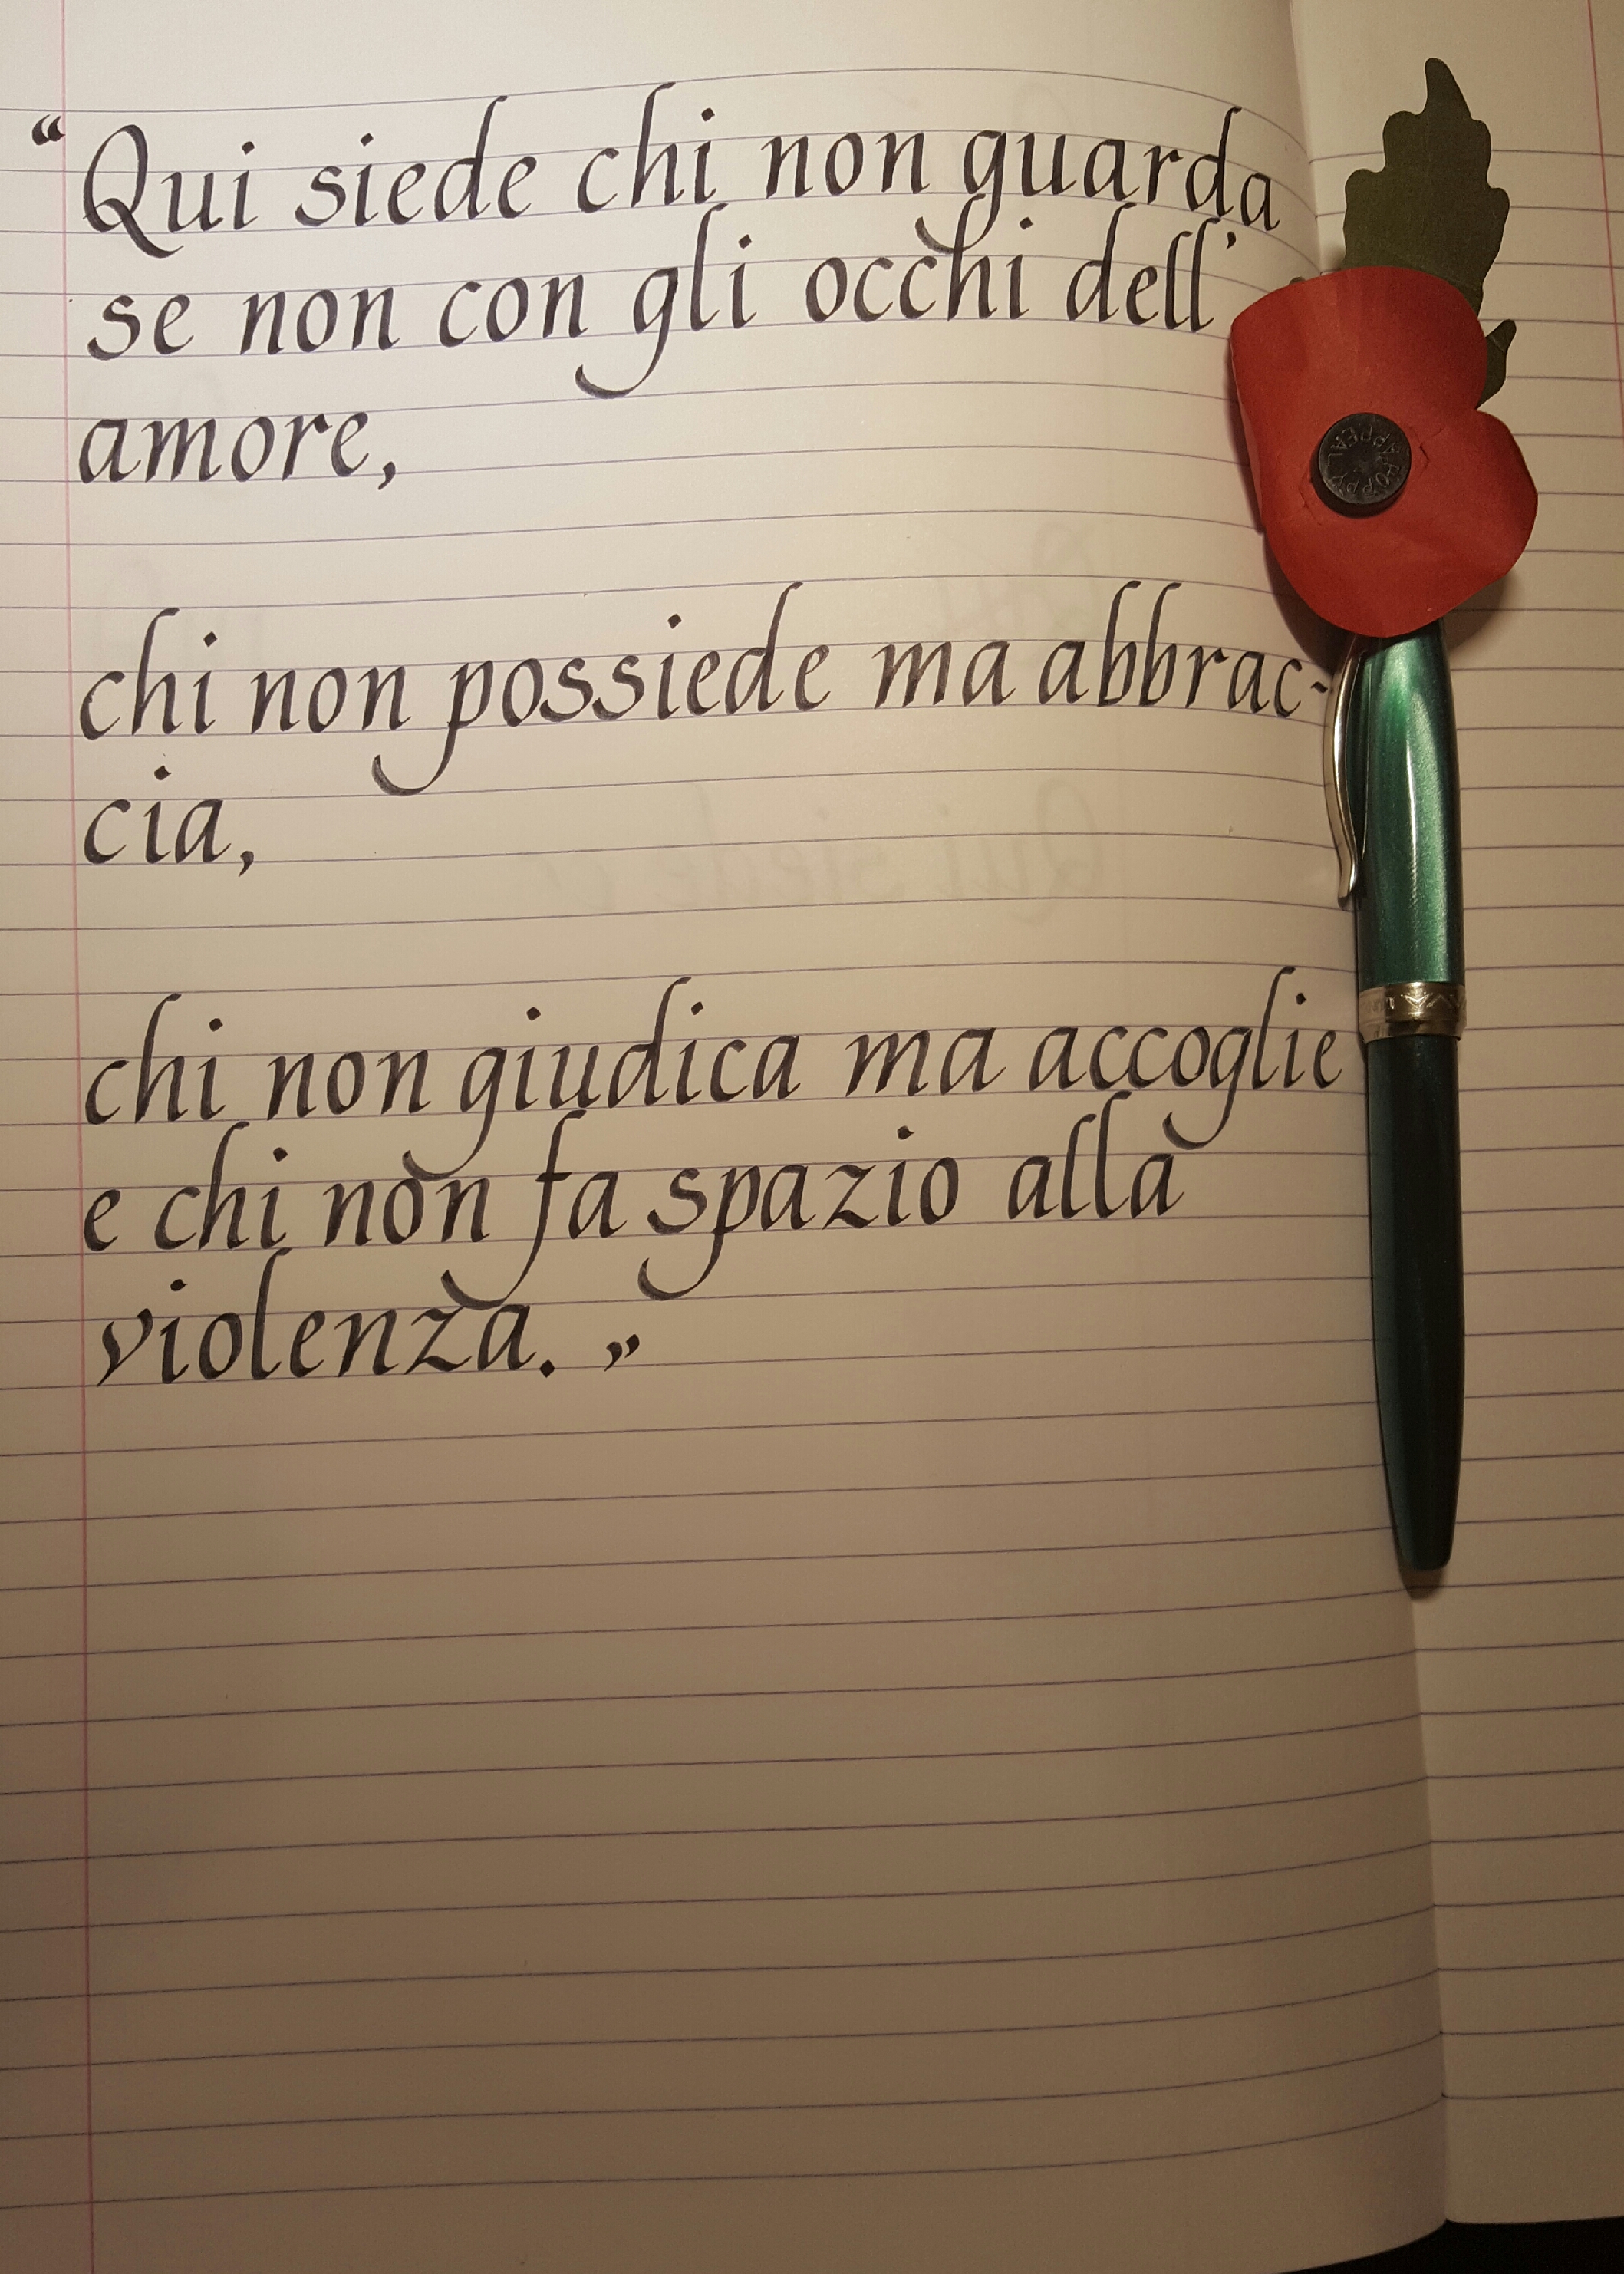 “Qui siede chi non guarda
se non con gli occhi dell'
amore,
chi non possiede ma abbrac-
cia,
chi non giudica ma accoglie
e chi non fa spazio alla
violenza.”
POPPY APPEAL